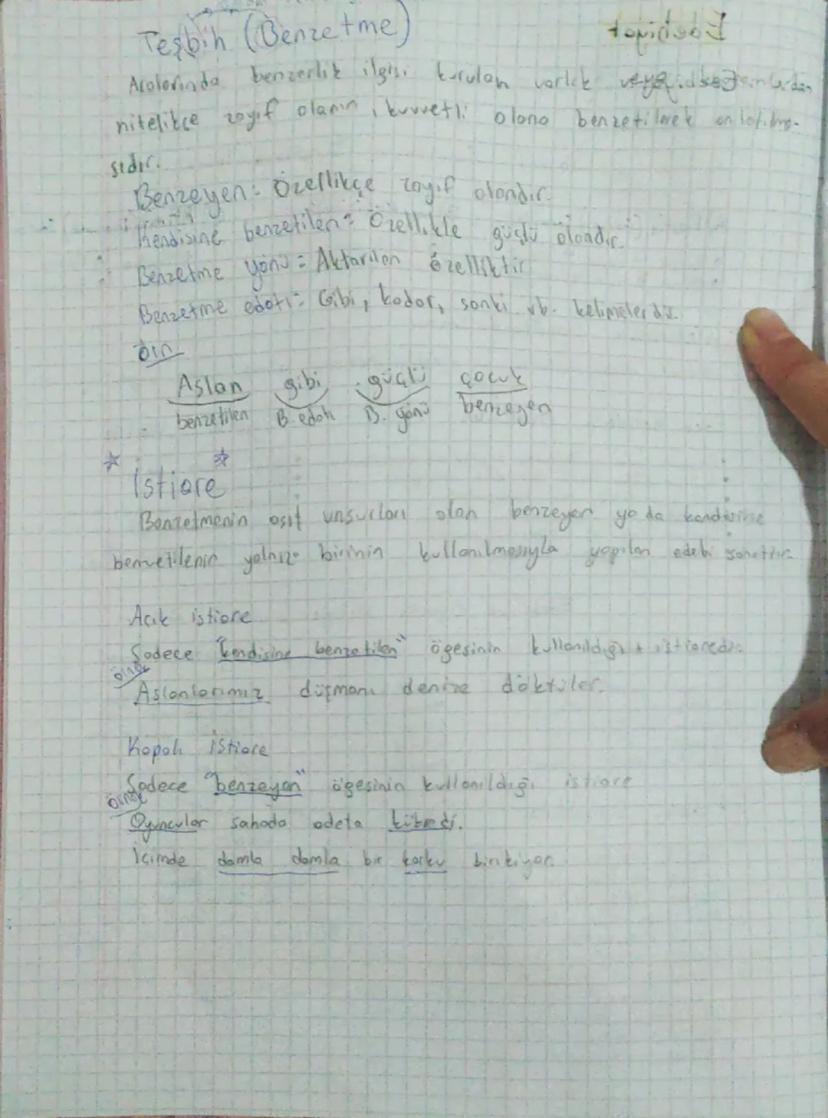 Teşbih (Benzetme)
Edebiyat
Aralarında benzerlik ilgisi kurulan varlık veya
nitelikçe zayıf olanın, kuvvetli olana benzetilerek anlatılma-
sıdır.
Benzeyen: Özellikçe zayıf olandır.
Kendisine benzetilen: Özellikle güçlü olandır.
Benzetme yönü: Aktarılan özelliktir
Benzetme edatı: Gibi, kadar, sanki vb. kelimelerdir.
Örn
Aslan gibi güçlü çocuk
benzetilen B. edatı B. yönü benzeyen
İstiare
Benzetmenin asıl unsurları olan benzeyen ya da kendisine
benzetilenin yalnız birinin kullanılmasıyla yapılan edebi sanattır.
Açık istiare
Sadece "kendisine benzetilen" ögesinin kullanıldığı istiaredir.
Örnek
Aslanlarımız düşmanı denize döktüler.
Kapalı istiare
Sadece "benzeyen" ögesinin kullanıldığı istiare
Örnek
Oyuncular sahada adeta kükredi.
İçimde damla damla bir korku birikiyor.